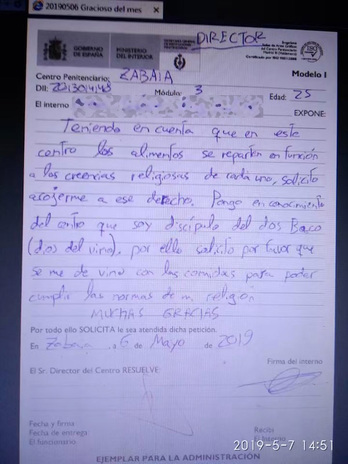 20190506 Gracioso del mes
DIRECTOR
GOBIERNO DE ESPAÑA
MINISTERIO DEL INTERIOR
Modelo I
Centro Penitenciario: ZABALA
DII: Módulo: 3 Edad: 25
El interno EXPONE:
Teniendo en cuenta que en este
centro los alimentos se reparten en función
a las creencias religiosas de cada uno, solicito
acojerme a ese derecho. Pongo en conocimiento
del centro que soy discípulo del dios Baco
(dios del vino), por ello solicito por favor que
se me de vino con las comidas para poder
cumplir las normas de mi religión
MUCHAS GRACIAS
Por todo ello SOLICITA le sea atendida dicha petición.
En Zabala a 6 de Mayo de 2019
Firma del interno
El Sr. Director del Centro RESUELVE:
Fecha y firma
Fecha de entrega:
El funcionario
Recibí
El Interno
EJEMPLAR PARA LA ADMINISTRACIÓN
2019-5-7 14:51